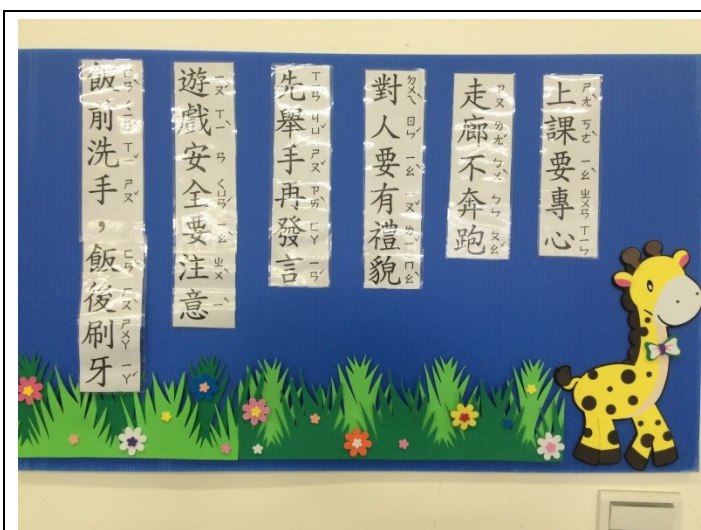 上課要專心
走廊不奔跑
對人要有禮貌
先舉手再發言
遊戲安全要注意
飯前洗手，飯後刷牙